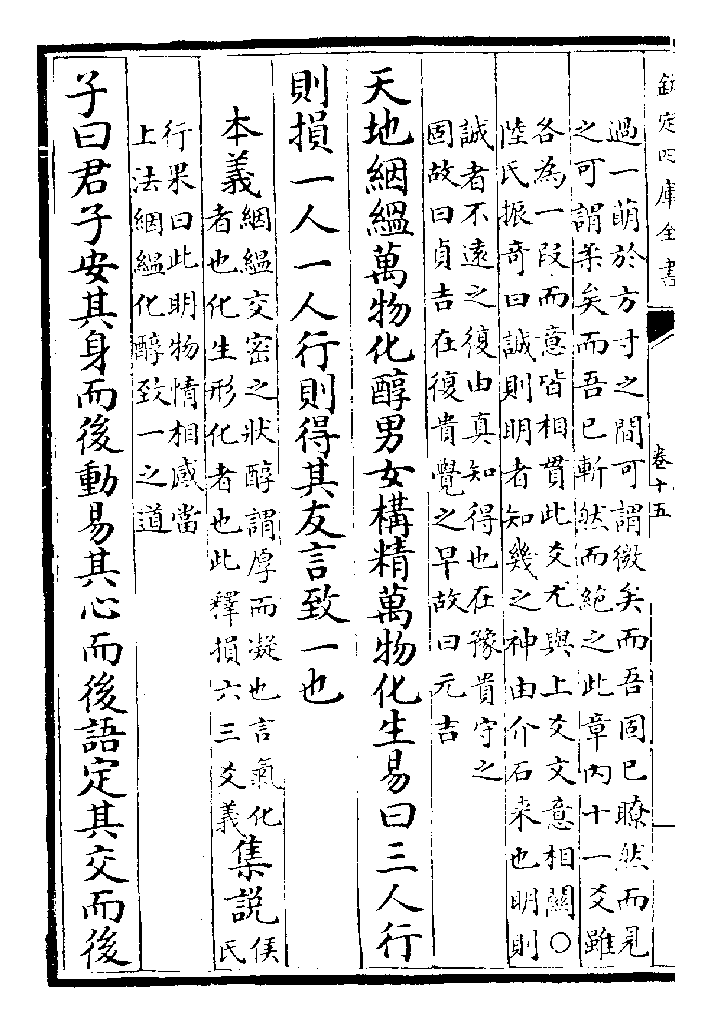 欽定四庫全書
卷十五
過一萌於方寸之間可謂微矣而吾固已瞭然而見
之可謂柔矣而吾已斬然而絶之此章内十一爻雖
各為一段而意皆相貫此爻尤與上爻文意相關○
陸氏振奇曰誠則明者知幾之神由介石来也明則
誠者不遠之復由真知得也在豫貴守之
固故曰貞吉在復貴覺之早故曰元吉
天地絪緼萬物化醇男女構精萬物化生易曰三人行
則損一人一人行則得其友言致一也
本義絪緼交密之狀醇謂厚而凝也言氣化
者也化生形化者也此釋損六三爻義集説侯氏
行果曰此明物情相感當
上法絪緼化醇致一之道
子曰君子安其身而後動易其心而後語定其交而後